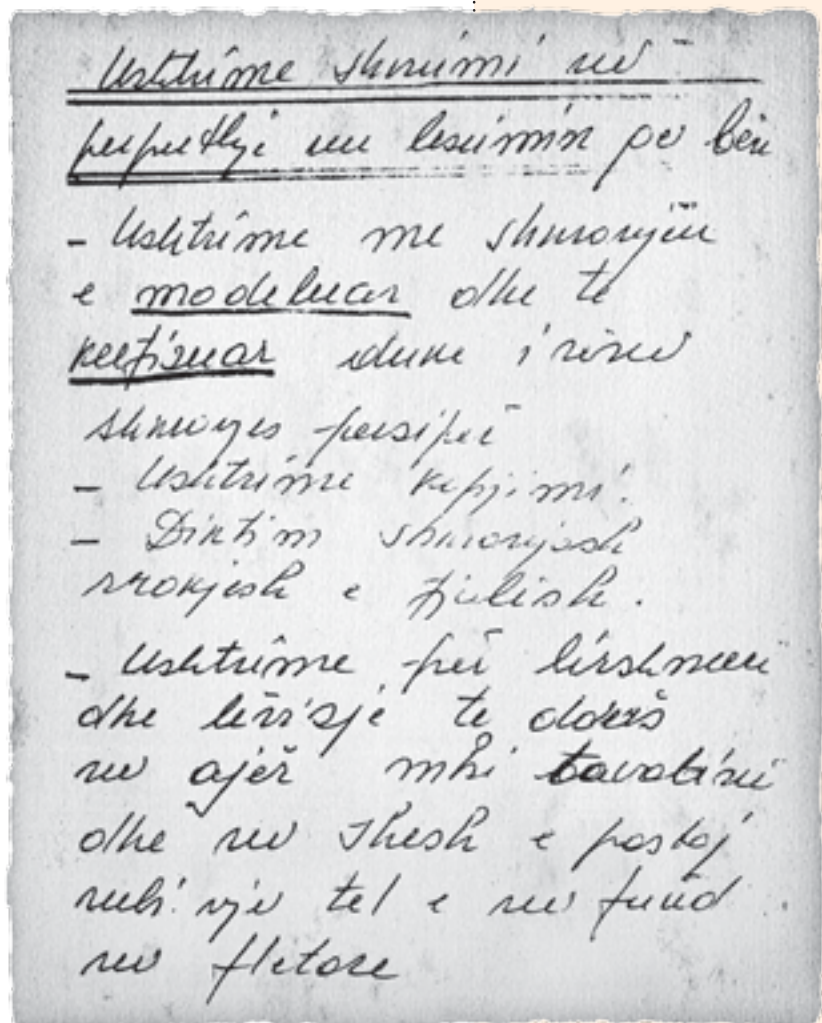 Ushtrime shkrimi në
përputhje me leximin për bën
- Ushtrime me shkronjën
e modeluar dhe të
kufizuar duke i rënë
shkronjës përsipër
- Ushtrime kopjimi.
- Diktim shkronjash
rrokjesh e fjalish.
- Ushtrime për lirshmëri
dhe lëvizje të dorës
në ajër mbi tavolinë
dhe në shesh e pastaj
mbi një tel e në fund
në fletore